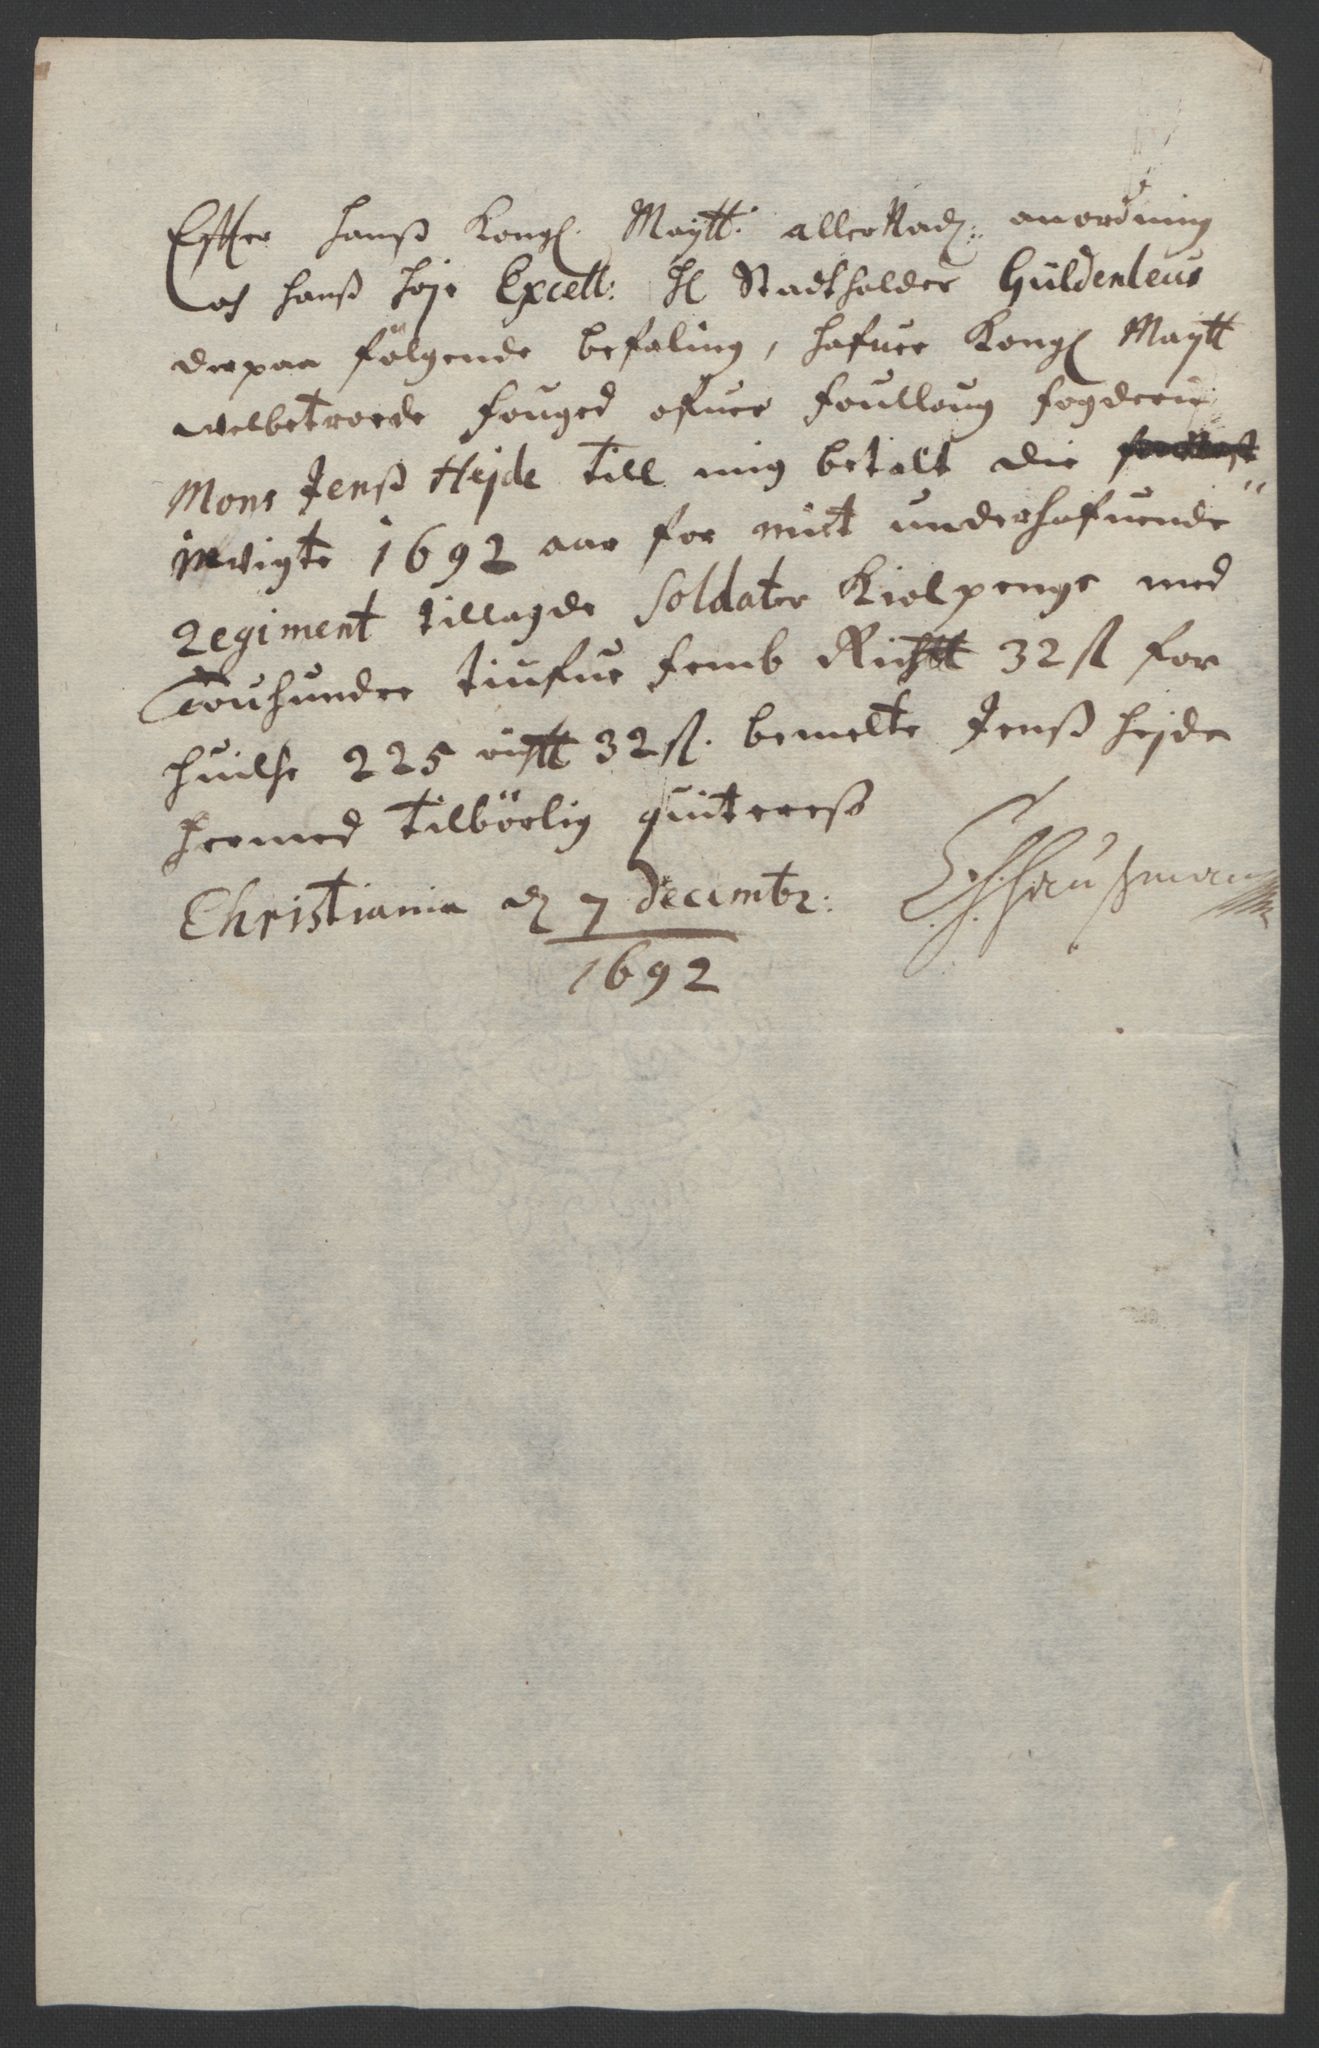 Effter hanß Kongl. Maytt: allernad: anordning
och hanß höje Excell: Hl Stadtholder Güldenleus
derpaa fölgende befaling, hafuer Kongl Maytt
welbetroede fouged ofuer foulloug fogderie
Mons Jenß Hejde till mig betalt die
1692 aar for mit underhafuende
Regiment tillagde Soldater Kiolpenge med
Touhundre tiufue femb Richstt 32 ß for
huilche 225 rixtt 32 ß. bemelte Jenß hejde
hermed tilbörlig quitereß
Christiania dȝ 7 Decembr:
1692
Haußmann